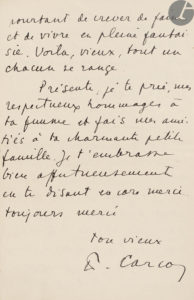 pourtant de crever de faim
et de vivre en pleine fantai
sie. Voilà, vieux, tout un
chacun se range
Présente, je te prie, mes
respectueux hommages à
ta femme et fais mes ami
tiés à ta charmante petite
famille. Je t'embrasse
bien affectueusement
en te disant encore merci
toujours merci
ton vieux
F. Carco